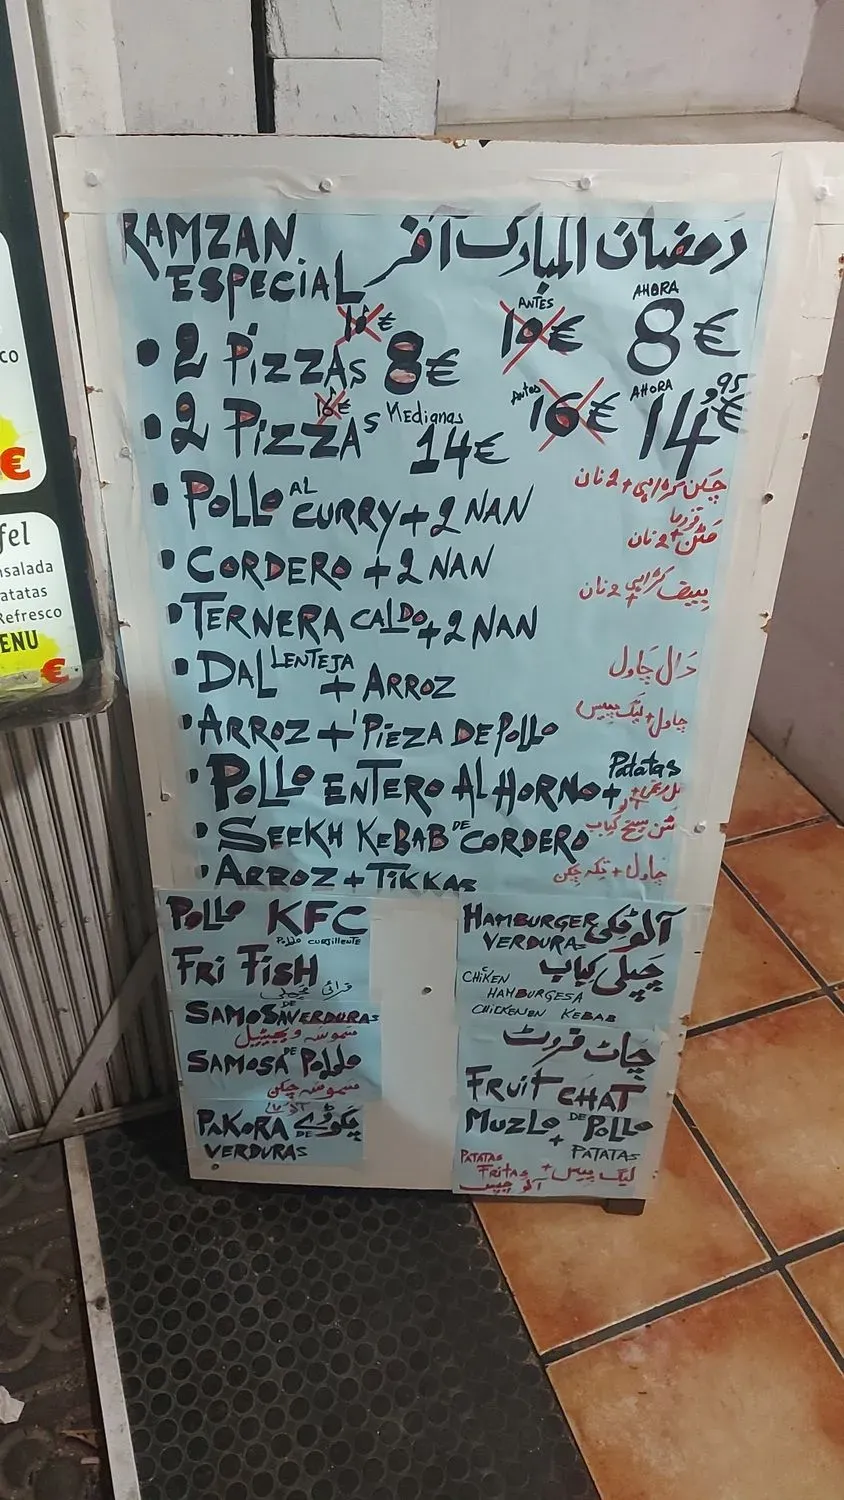 RAMZAN رمضان المبارک آفر
ESPECIAL
• 2 PIZZAS 10€ 8€ ANTES 10€ AHORA 8€
• 2 PIZZAS 16€ Medianas 14€ Antes 16€ AHORA 14,95€
• POLLO AL CURRY + 2 NAN چکن کڑاہی + 2 نان
• CORDERO + 2 NAN مٹن قورما + 2 نان
• TERNERA CALDO + 2 NAN بیف کڑاہی + 2 نان
• DAL LENTEJA + ARROZ دال چاول
• ARROZ + 1 PIEZA DE POLLO چاول + لیگ پیس
• POLLO ENTERO AL HORNO + Patatas
• SEEKH KEBAB DE CORDERO مٹن سیخ کباب
• ARROZ + TIKKAS چاول + تکہ چکن
POLLO KFC
Pollo crujillente
FRI FISH
فرائی مچھلی
SAMOSA DE VERDURAS
سموسہ ویجیٹیبل
SAMOSA DE POLLO
سموسہ چکن
PAKORA DE پکوڑے
VERDURAS
HAMBURGER آلو ٹکی
VERDURAS
چپلی کباب
CHIKEN
HAMBURGESA
CHICKENEN KEBAB
چاٹ فروٹ
FRUIT CHAT
MUZLO DE POLLO
+ PATATAS
PATATAS
FRITAS لیگ پیس +
آلو چپس
co
€
fel
nsalada
atatas
Refresco
ENU
€